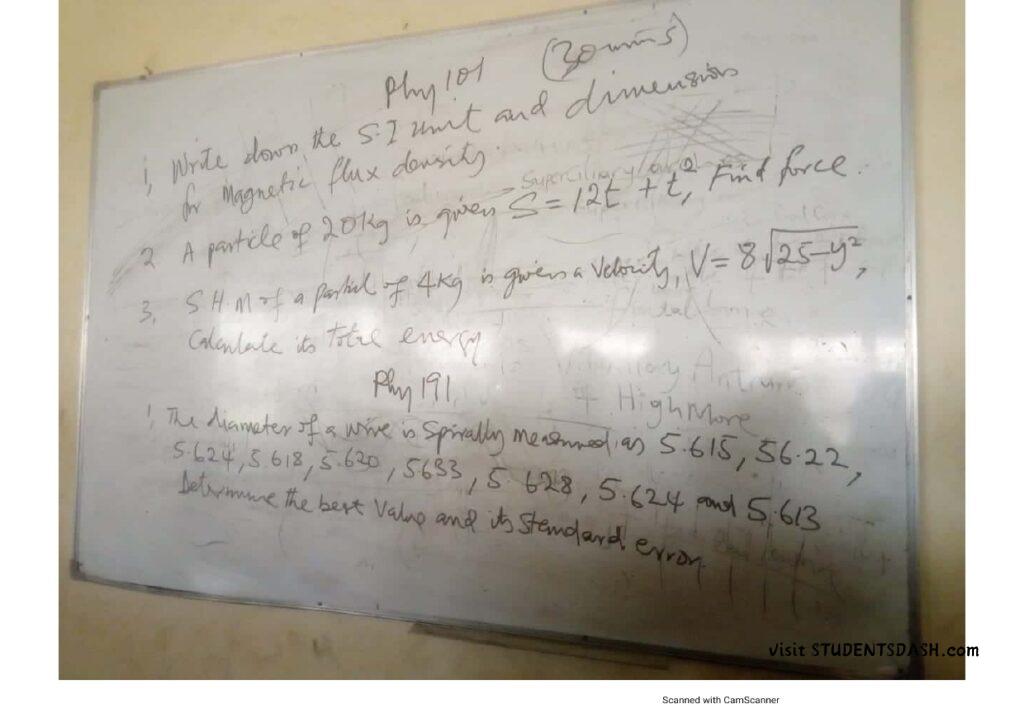 Phy 101 (30 mins)
1, Write down the S.I Unit and dimension
for Magnetic flux density.
2 A particle of 20kg is given S = 12t + t², Find force.
3, S.H.M of a partial of 4kg is given a Velocity, V = 8√25-y²,
Calculate its total energy
Phy 191
1, The diameter of a wire is Spirally measured as 5.615, 56.22,
5.624, 5.618, 5.620, 5633, 5.628, 5.624 and 5.613
Determine the best Value and its standard error.
Superciliary
Antrum
High More
visit STUDENTSDASH.com
Scanned with CamScanner